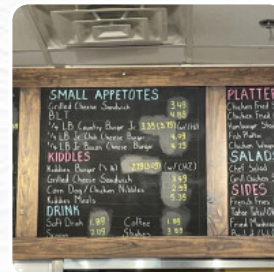 SMALL APPETOTES
Grilled Cheese Sandwich 3.49
BLT 4.89
1/4 LB Country Burger Jr 3.39 (3.75) (w/CHZ)
1/4 LB Jr Chili Cheese Burger 4.29
1/4 LB Jr Bacon Cheese Burger
KIDDLES
Kiddles Burger (w/CHZ)
Grilled Cheese Sandwich 3.49
Corn Dog / Chicken Nibbles 2.99
Kiddles Meals 5.35
DRINK
Soft Drink 1.89 Coffee 1.89
2.09 Shakes
PLATTER
Chicken Fried
Chicken Fried
Hamburger Ste
Fish Platter
Chicken Wings
SALAD
Chef Salad
SIDES
French Fries
Fried Mushroo